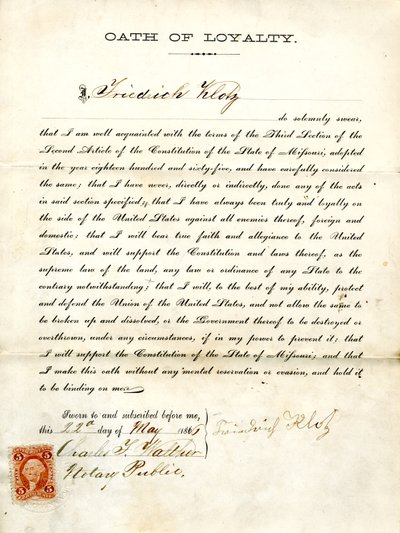 OATH OF LOYALTY.
I, Friedrich Klotz
do solemnly swear,
that I am well acquainted with the terms of the Third Section of the
Second Article of the Constitution of the State of Missouri, adopted
in the year eighteen hundred and sixty-five, and have carefully considered
the same; that I have never, directly or indirectly, done any of the acts
in said section specified; that I have always been truly and loyally on
the side of the United States against all enemies thereof, foreign and
domestic; that I will bear true faith and allegiance to the United
States, and will support the Constitution and laws thereof, as the
supreme law of the land, any law or ordinance of any State to the
contrary notwithstanding; that I will, to the best of my ability, protect
and defend the Union of the United States, and not allow the same to
be broken up and dissolved, or the Government thereof to be destroyed or
overthrown, under any circumstances, if in my power to prevent it; that
I will support the Constitution of the State of Missouri; and that
I make this oath without any mental reservation or evasion, and hold it
to be binding on me.
Sworn to and subscribed before me,
this 22d day of May 186
Friedrich Klotz
Charles F.
Notary Public.
5 5